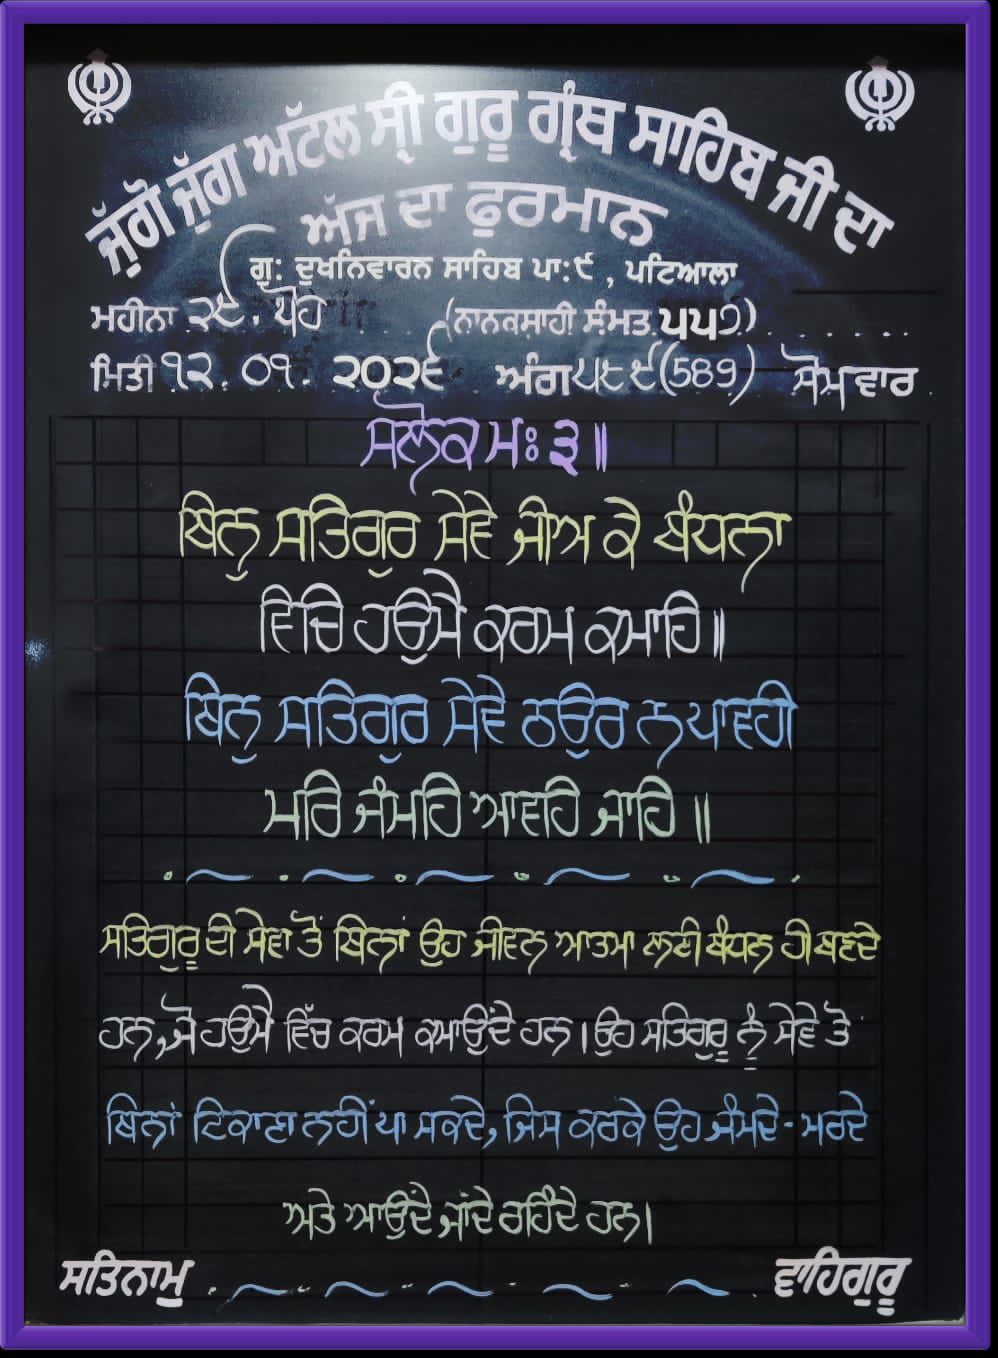 ਜੁੱਗੋ ਜੁੱਗ ਅੱਟਲ ਸ੍ਰੀ ਗੁਰੂ ਗ੍ਰੰਥ ਸਾਹਿਬ ਜੀ ਦਾ
ਅੱਜ ਦਾ ਫੁਰਮਾਨ
ਗੁ: ਦੁਖਨਿਵਾਰਨ ਸਾਹਿਬ ਪਾ:੯ , ਪਟਿਆਲਾ
ਮਹੀਨਾ ੨੯. ਪੋਹ (ਨਾਨਕਸ਼ਾਹੀ ਸੰਮਤ ੫੫੭)
ਮਿਤੀ ੧੨. ੦੧. ੨੦੨੬ ਅੰਗ ੫੮੯(589) ਸੋਮਵਾਰ
ਸਲੋਕ ਮਃ ੩॥
ਬਿਨੁ ਸਤਿਗੁਰ ਸੇਵੇ ਜੀਅ ਕੇ ਬੰਧਨਾ
ਵਿਚਿ ਹਉਮੈ ਕਰਮ ਕਮਾਹਿ॥
ਬਿਨੁ ਸਤਿਗੁਰ ਸੇਵੇ ਠਉਰ ਨ ਪਾਵਹੀ
ਮਰਿ ਜੰਮਹਿ ਆਵਹਿ ਜਾਹਿ ॥
ਸਤਿਗੁਰੂ ਦੀ ਸੇਵਾ ਤੋਂ ਬਿਨਾਂ ਉਹ ਜੀਵਨ ਆਤਮਾ ਲਈ ਬੰਧਨ ਹੀ ਬਣਦੇ
ਹਨ,ਜੋ ਹਉਮੈ ਵਿੱਚ ਕਰਮ ਕਮਾਉਂਦੇ ਹਨ।ਉਹ ਸਤਿਗੁਰੂ ਨੂੰ ਸੇਵੇ ਤੋ
ਬਿਨਾਂ ਟਿਕਾਣਾ ਨਹੀਂ ਪਾ ਸਕਦੇ, ਜਿਸ ਕਰਕੇ ਉਹ ਜੰਮਦੇ-ਮਰਦੇ
ਅਤੇ ਆਉਂਦੇ ਜਾਂਦੇ ਰਹਿੰਦੇ ਹਨ।
ਸਤਿਨਾਮੁ ਵਾਹਿਗੁਰੂ